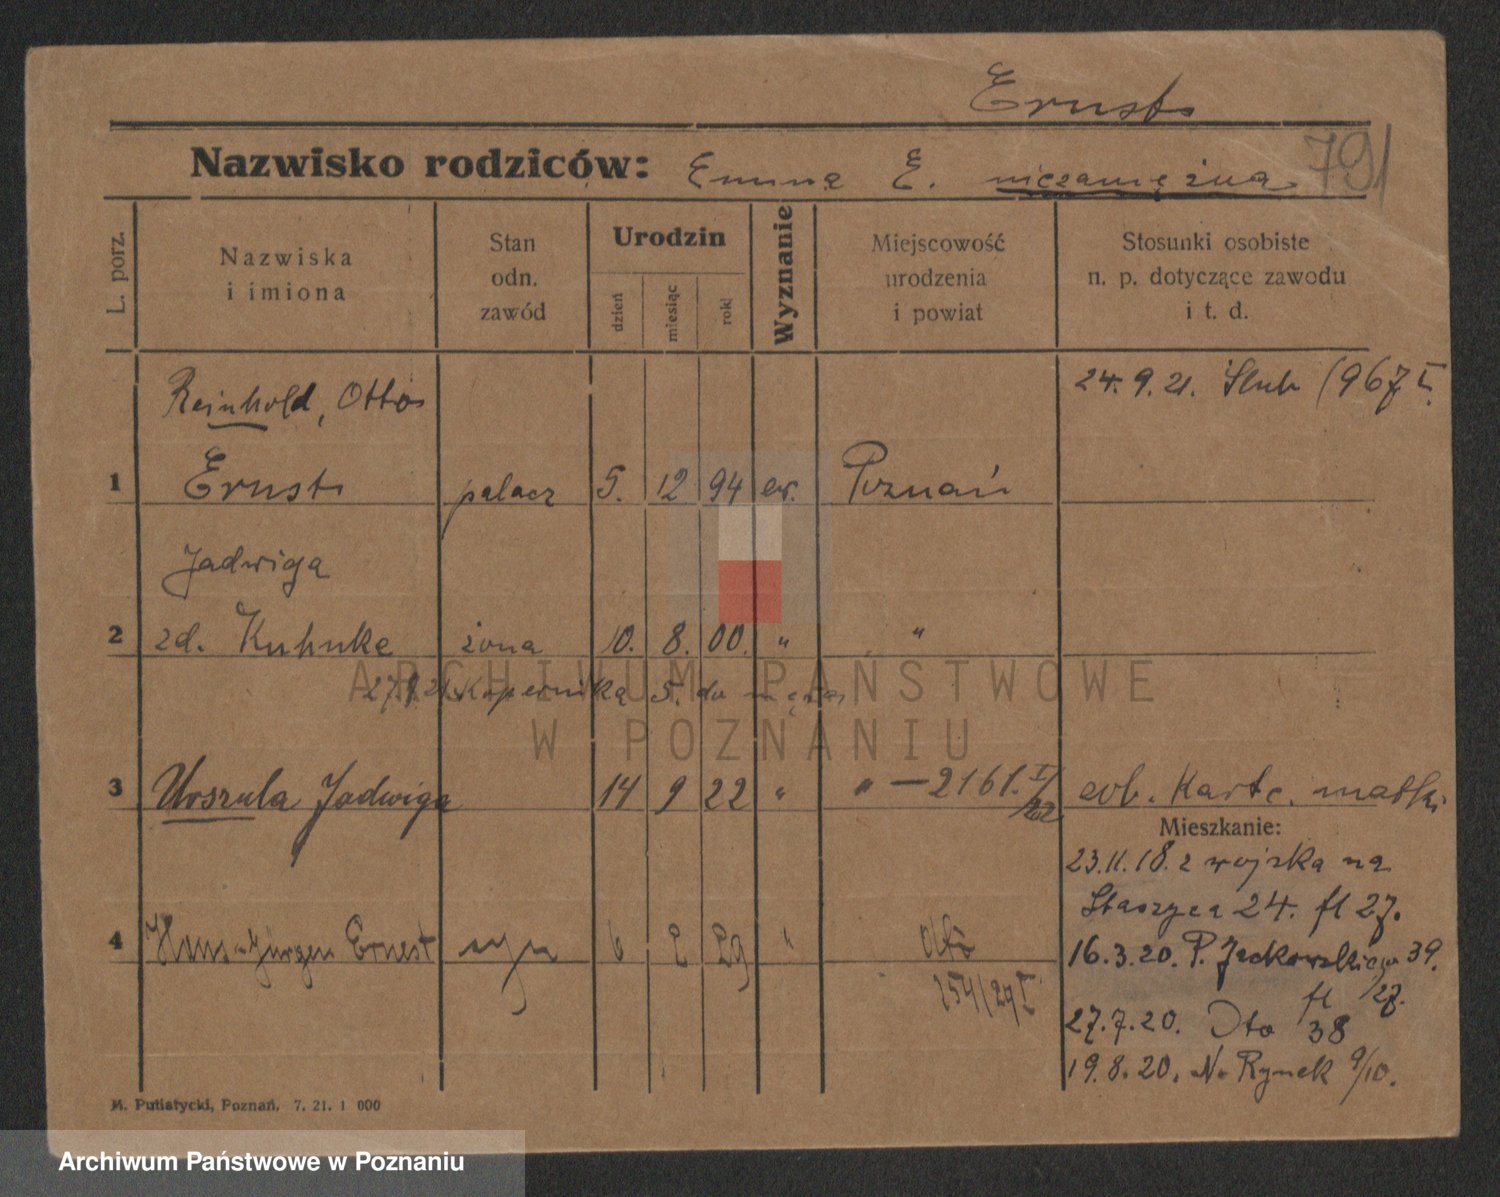 Ernst
791
Nazwisko rodziców: Emma E. niezamężna
L. porz.
Nazwiska
i imiona
Stan
odn.
zawód
Urodzin
dzień
miesiąc
rok
Wyznanie
Miejscowość
urodzenia
i powiat
Stosunki osobiste
n. p. dotyczące zawodu
i t. d.
Reinhold, Otto 24.9.21. Slub (967 I.
1 Ernst palacz 5. 12 94 ew. Poznań
Jadwiga
2 zd. Kuhnke żona 10. 8. 00. " "
Kopernika 5. do męża
3 Urszula Jadwiga 14 9 22 " " — 2161. I/22 ob. Karte. matki
Mieszkanie:
23.11.18. z wojska na
Staszyca 24. fl 27.
4 Hans-Jürgen Ernest syn 6 2 29 "
16.3.20. P. Jackowskiego 39.
fl 27.
254/29 I
27.7.20. Dto 38
19.8.20. N. Rynek 9/10.
M. Putiatycki, Poznań, 7. 21. 1 000
ARCHIWUM PAŃSTWOWE
W POZNANIU
Archiwum Państwowe w Poznaniu